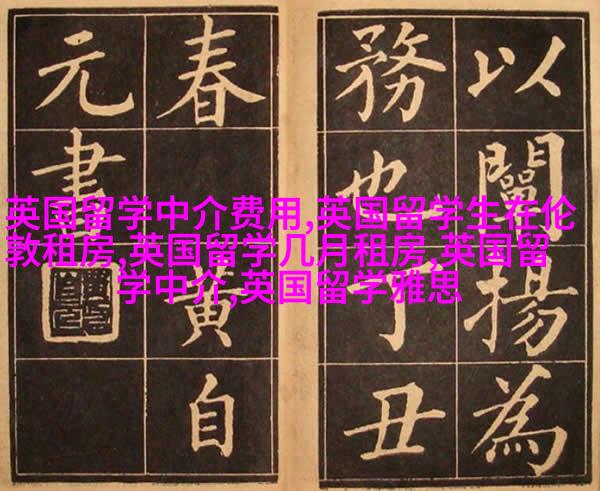 以闡揚為
務也丁丑
春黃自
元書
英国留学中介费用,英国留学生在伦
敦租房,英国留学几月租房,英国留
学中介,英国留学雅思